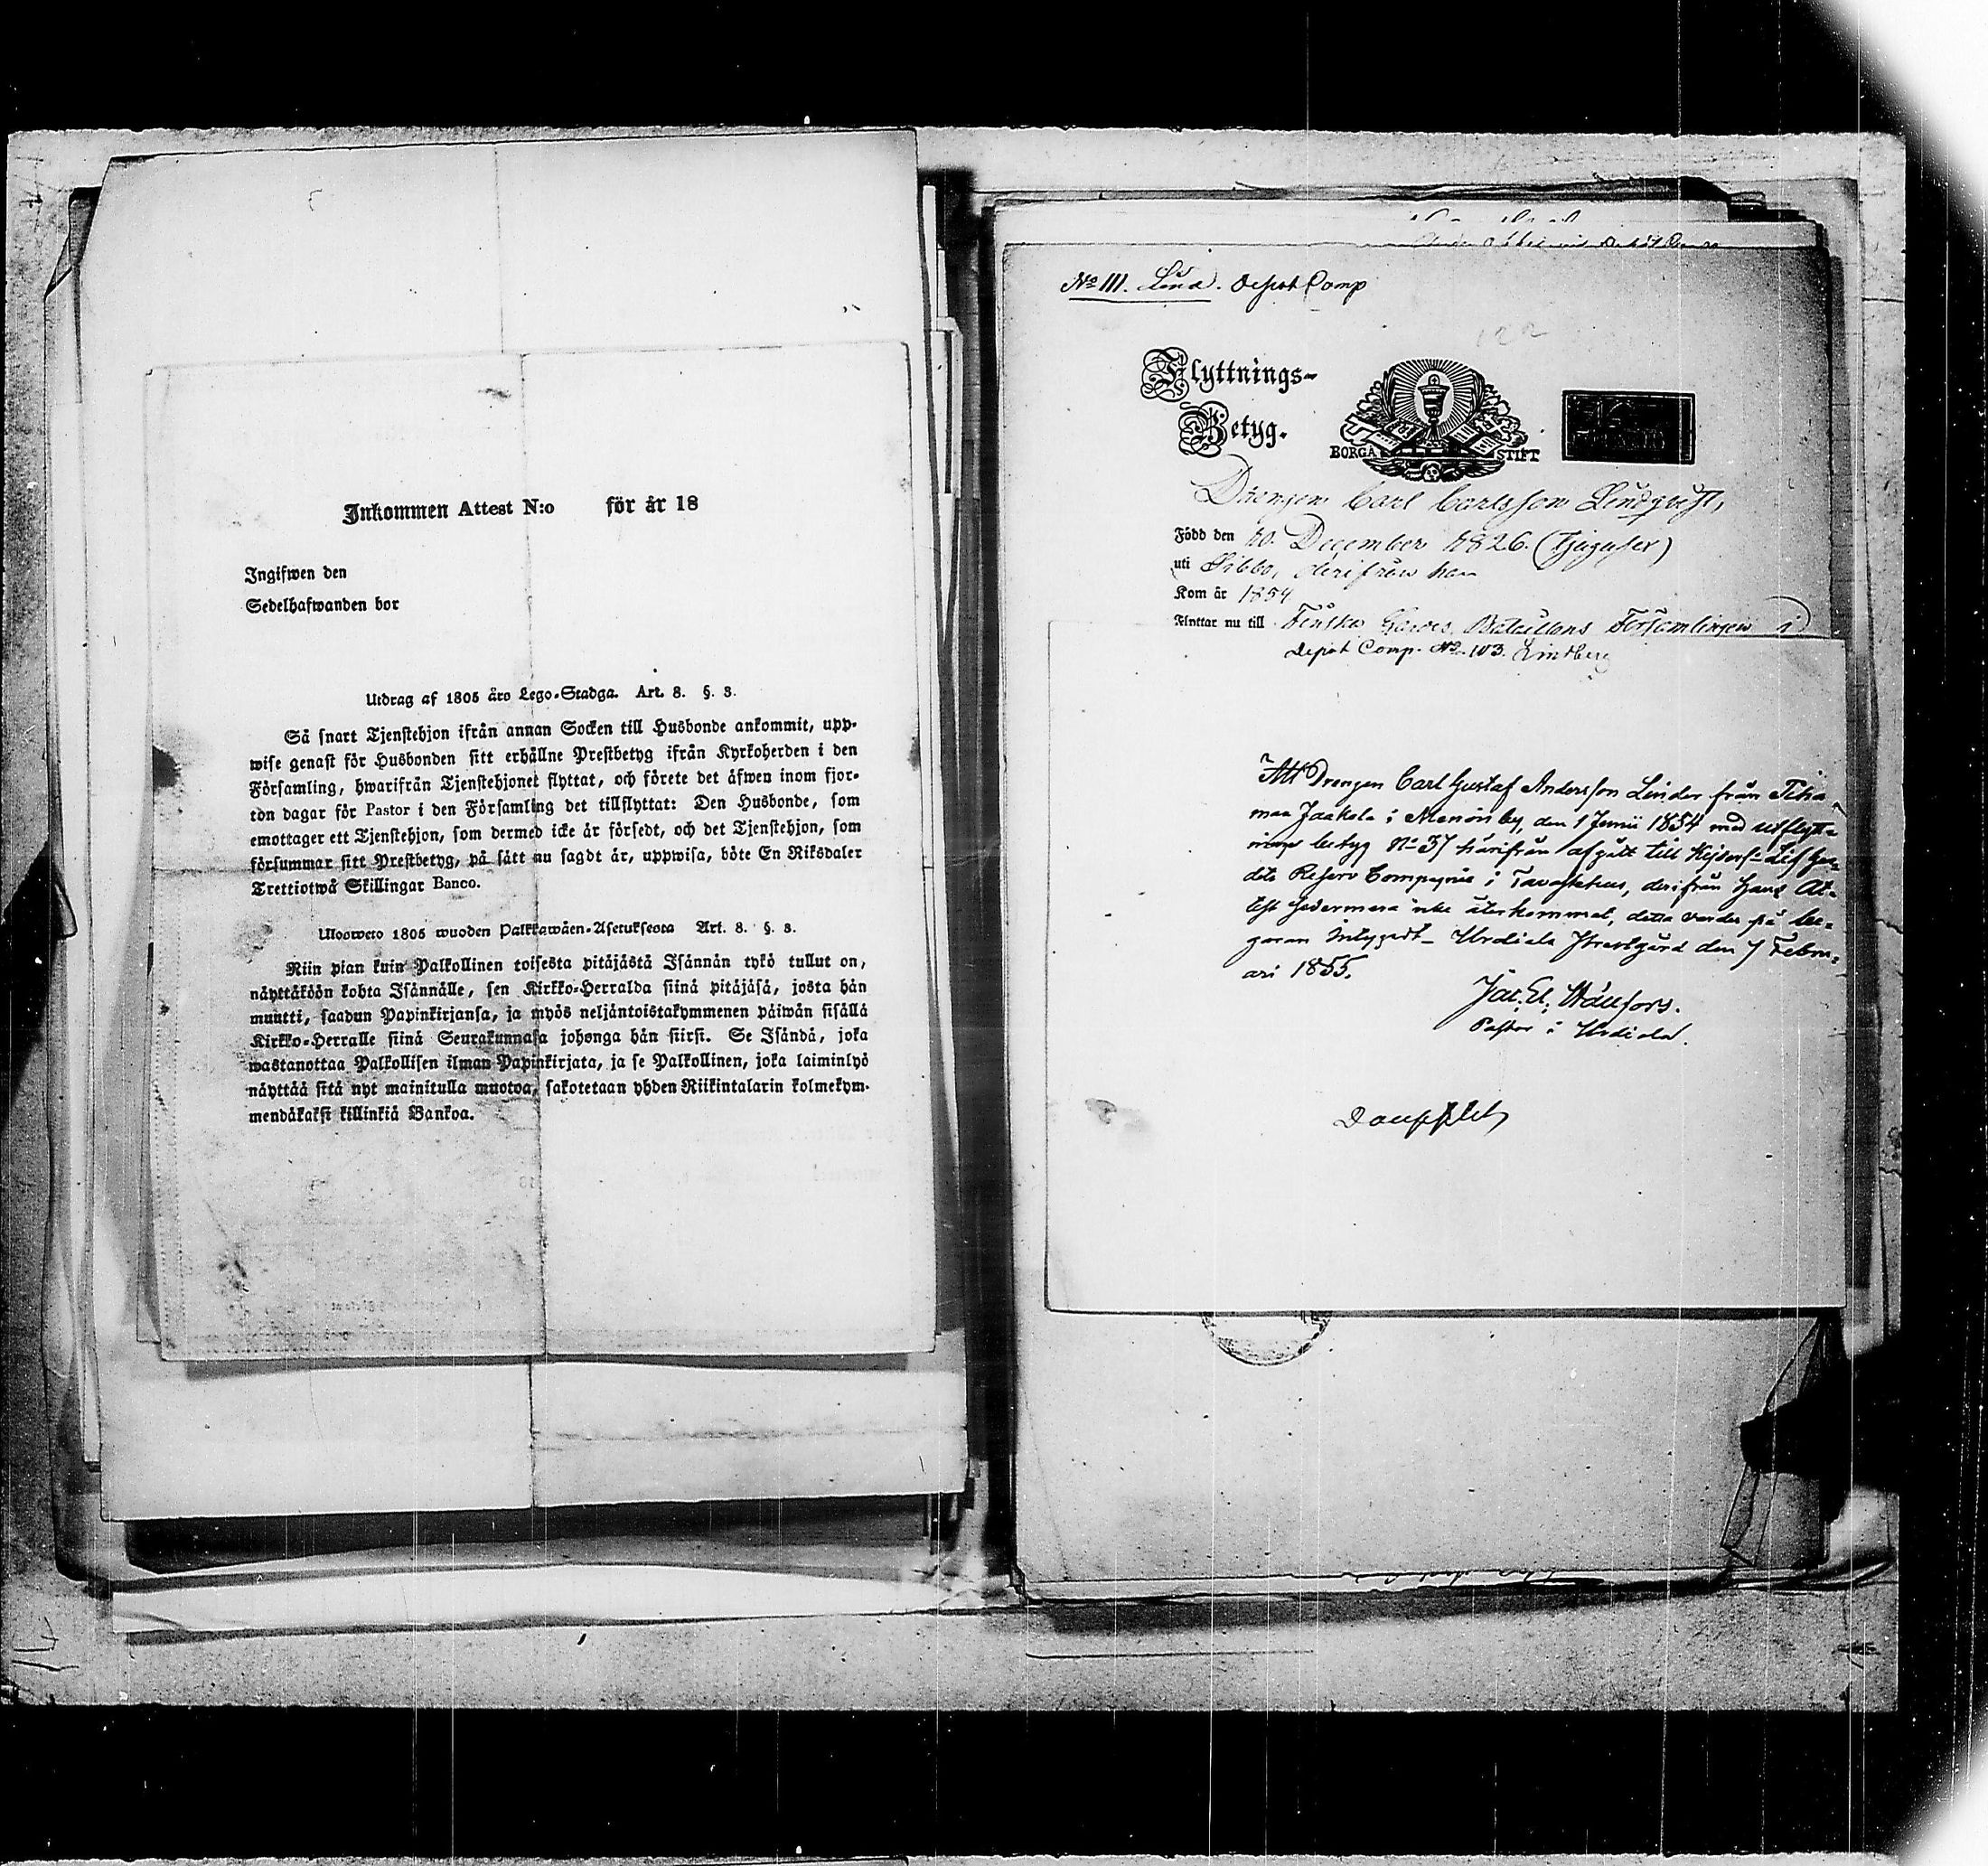 Inkommen Attest N:o för år 18
Ingifwen den
Sedelhafwanden bor
Utdrag af 1805 års Lego-Stadga. Art. 8. §. 3.
Så snart Tjenstehjon ifrån annan Socken till Husbonde ankommit, upp-
wise genast för Husbonden sitt erhållne Prestbetyg ifrån Kyrkoherden i den
Församling, hwarifrån Tjenstehjonet flyttat, och förete det äfwen inom fjor-
ton dagar för Pastor i den Församling det tillflyttat: Den Husbonde, som
emottager ett Tjenstehjon, som dermed icke är försedt, och det Tjenstehjon, som
försummar sitt Prestbetyg, på sätt nu sagdt är, uppwisa, böte En Riksdaler
Trettiotwå Skillingar Banco.
Ulosweto 1805 wuoden Palkkawäen-Asetuksesta Art. 8. §. 3.
Niin pian kuin Palkollinen toisesta pitäjästä Isännän tykö tullut on,
näyttäköön kohta Isännälle, sen Kirkko-Herralda siinä pitäjäsä, josta hän
muutti, saadun Papinkirjansa, ja myös neljäntoistakymmenen päiwän sisällä
Kirkko-Herralle siinä Seurakunnasa johonga hän siirsi. Se Isändä, joka
wastanottaa Palkollisen ilman Papinkirjata, ja se Palkollinen, joka laiminlyö
näyttää sitä nyt mainitulla muotoa, sakotetaan yhden Riikintalarin kolmekym-
mendäkaksi killinkiä Bankoa.
No 111. Lind. Depot Comp
122
Flyttnings-
Betyg.
BORGÅ STIFT
Drengen Carl Carlsson Lindqvist,
Född den 20. December 1826. (tjugusex)
uti Sibbo, derifrån han
Kom år 1854
Flyttar nu till Finska Gardes Bataillons Församlingen i
Depot Comp. No 103. Lindberg
Att Drengen Carl Gustaf Andersson Linder från
maa Jaakola i Menonby, den 1 Junii 1854 med utflytt-
nings betyg No 37 härifrån afgått till Kejserl. Lif Gar-
dets Reserv Compagnie i Tavastehus, derifrån Hans At-
test sedermera icke återkommit, detta varder på be-
gäran intygadt_ Urdiala Prestgård den 7 Febru-
ari 1855.
Pastor i Urdiala.